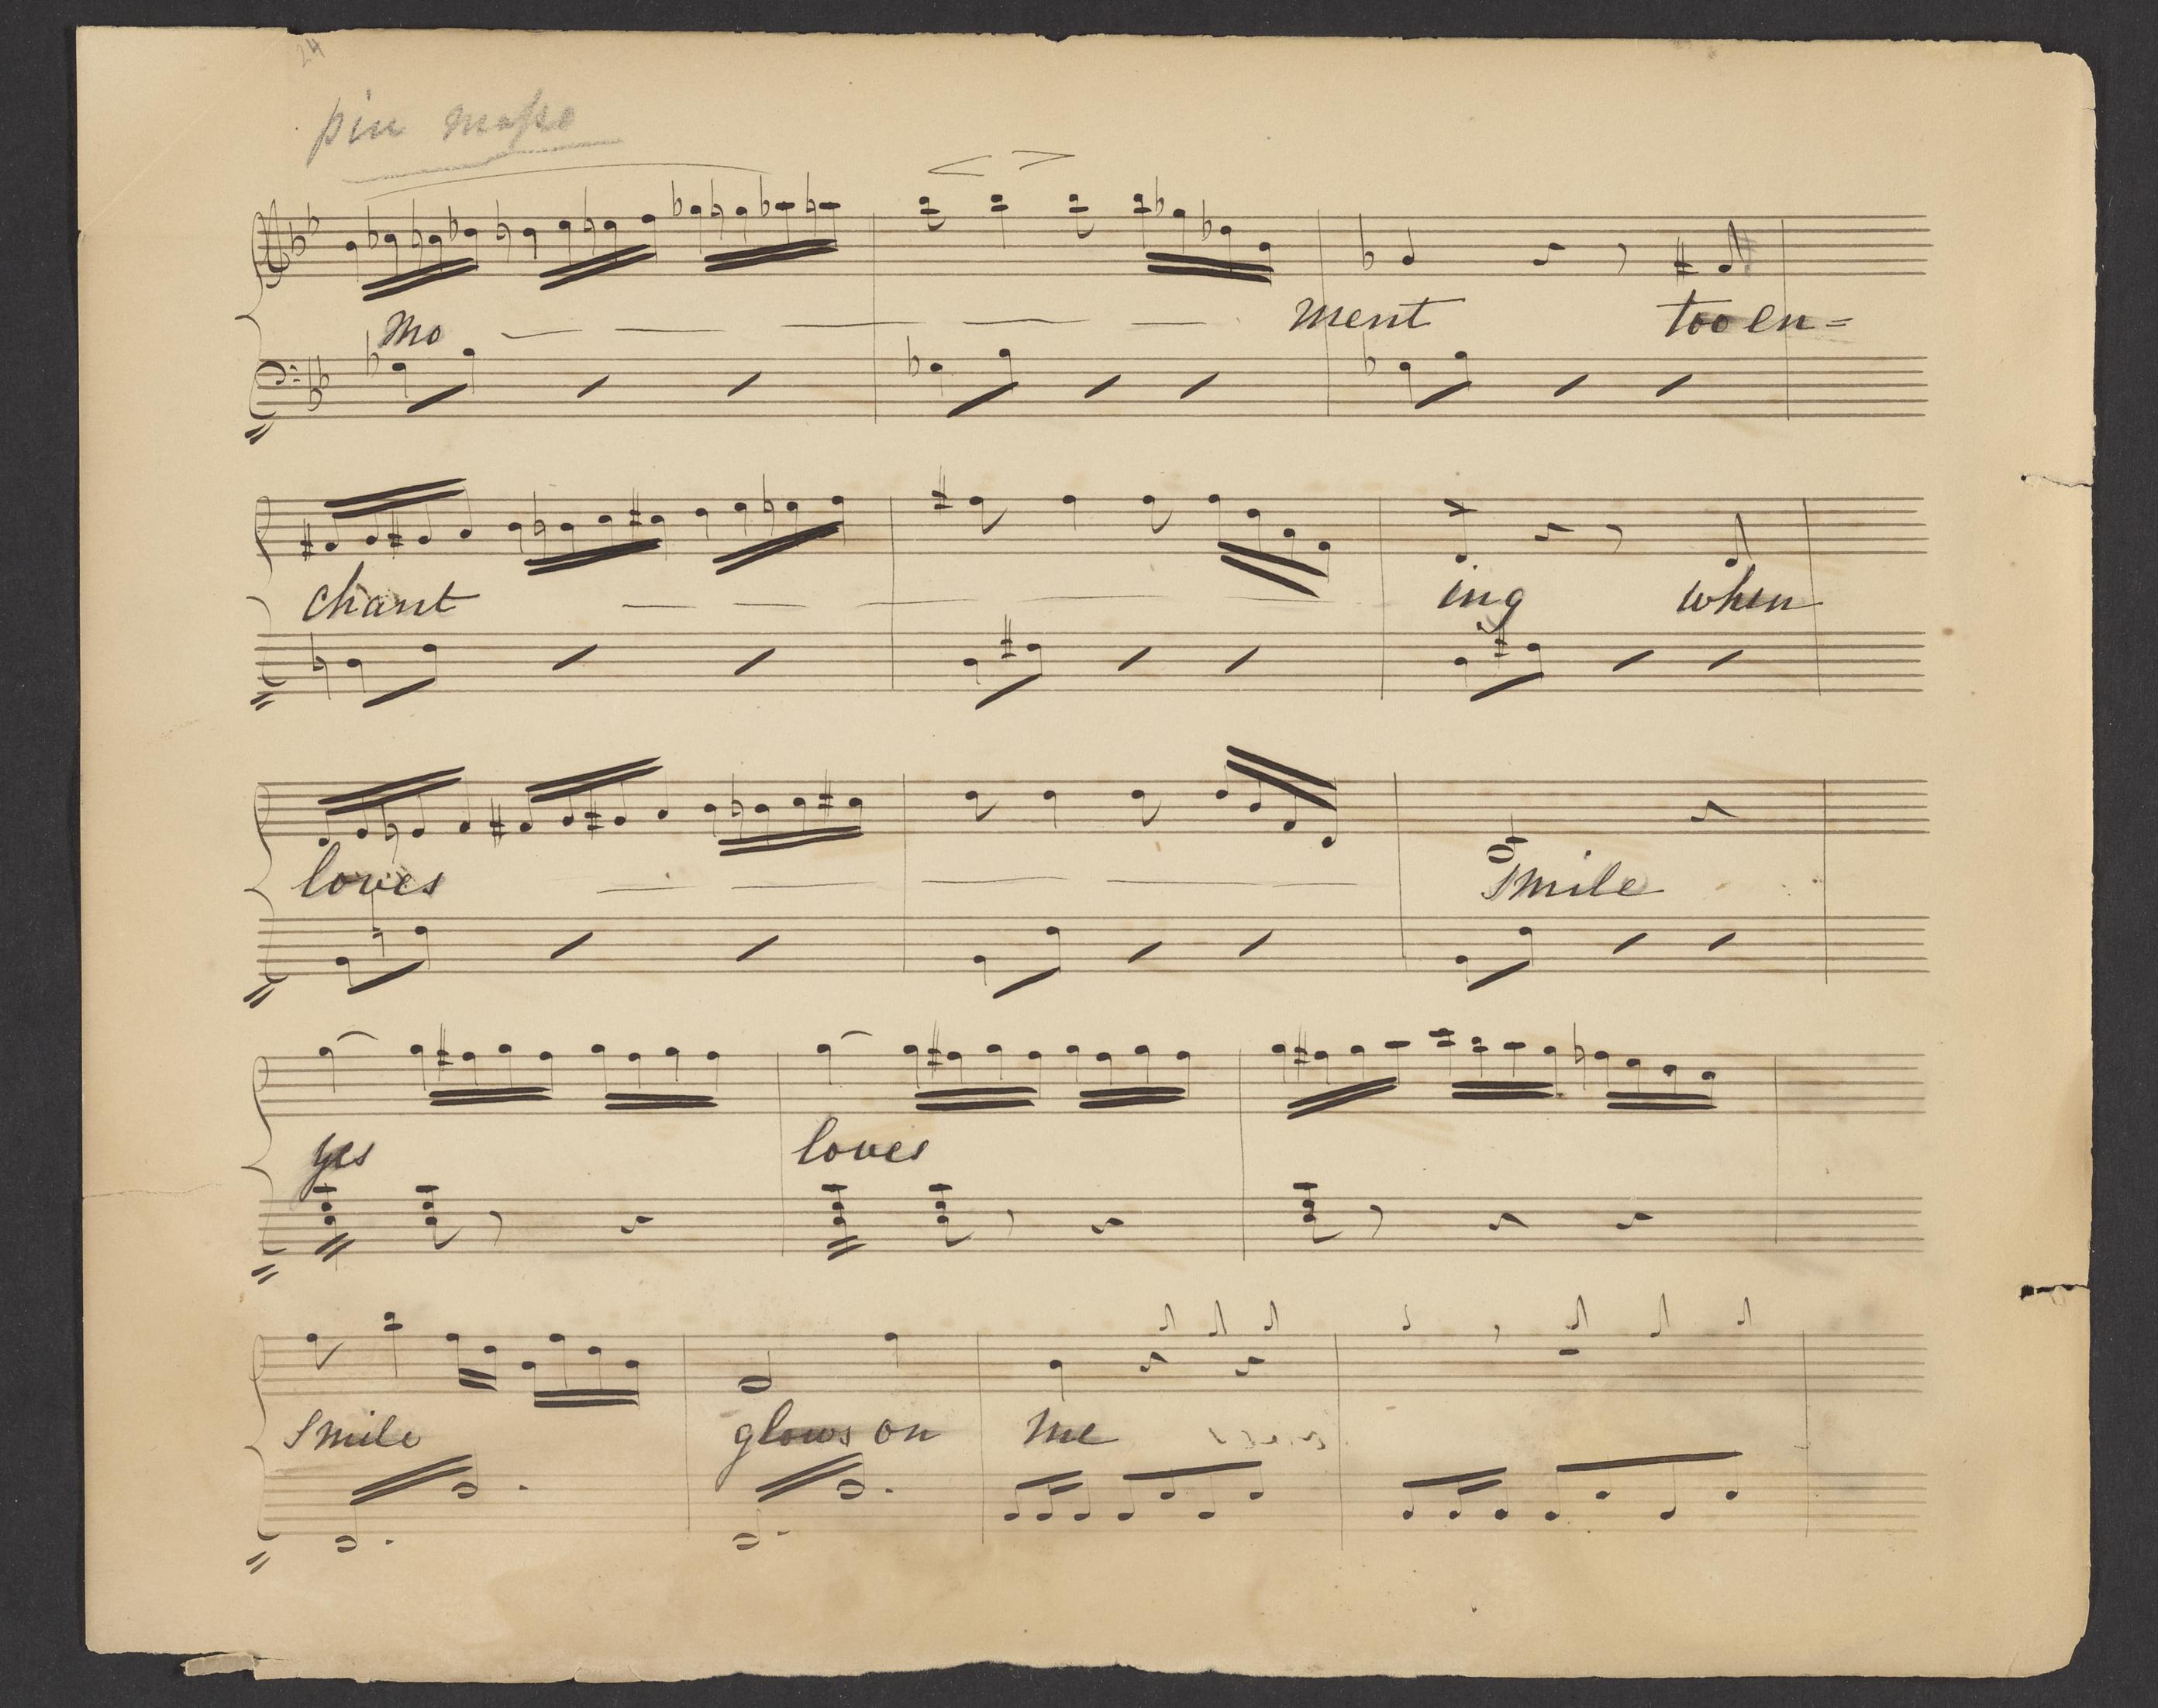 24
piu mosso
mo — — — — — ment too en=
chant — — — — — ing when
loves — — — — — smile
yes loves
smile glows on me